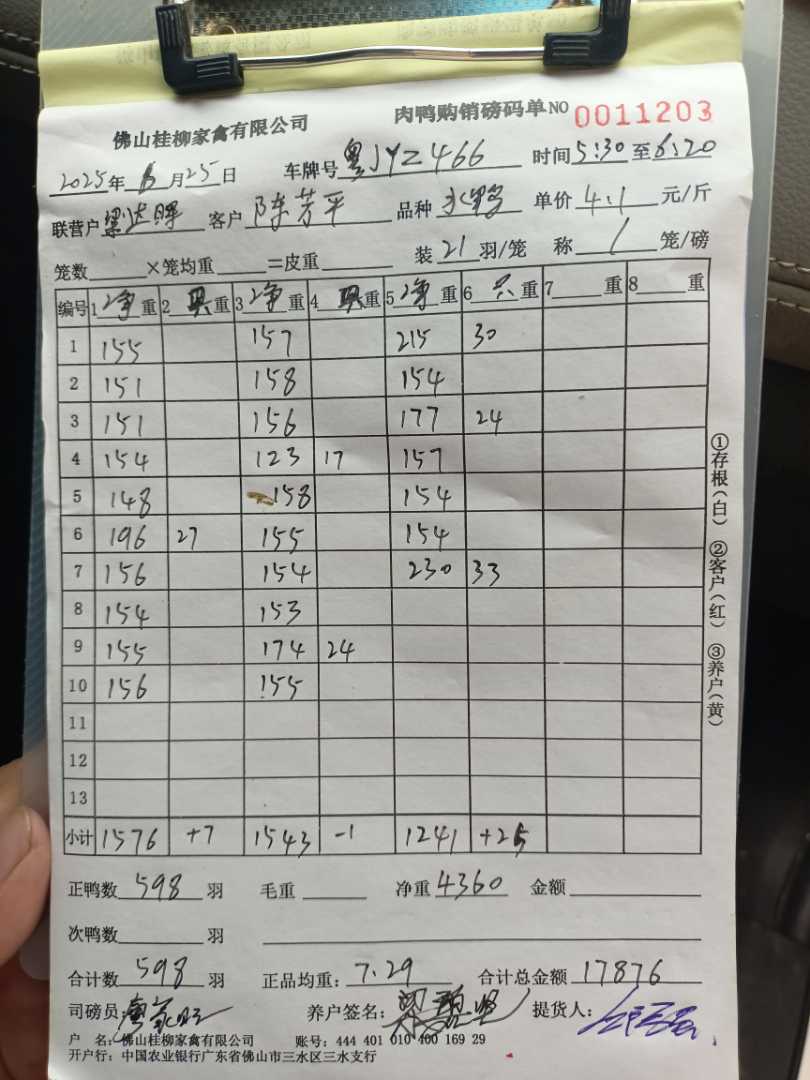 佛山桂柳家禽有限公司 肉鸭购销磅码单NO 0011203
2025年6月25日 车牌号粤JYZ466 时间5:30至6:20
联营户梁达晖 客户陈芳平 品种水鸭 单价4.1元/斤
笼数 ×笼均重 =皮重 装21羽/笼 称1笼/磅
编号 1净重 2只重 3净重 4只重 5净重 6只重 7 重 8 重
1 155 157 215 30
2 151 158 154
3 151 156 177 24
4 154 123 17 157
5 148 158 154
6 196 27 155 154
7 156 154 230 33
8 154 153
9 155 174 24
10 156 155
11
12
13
小计 1576 +7 1543 -1 1241 +25
正鸭数598羽 毛重 净重4360 金额
次鸭数 羽
合计数598羽 正品均重:7.29 合计总金额17876
司磅员: 养户签名: 提货人:
户 名:佛山桂柳家禽有限公司 账号:444 401 010 400 169 29
开户行:中国农业银行广东省佛山市三水区三水支行
①存根(白) ②客户(红) ③养户(黄)